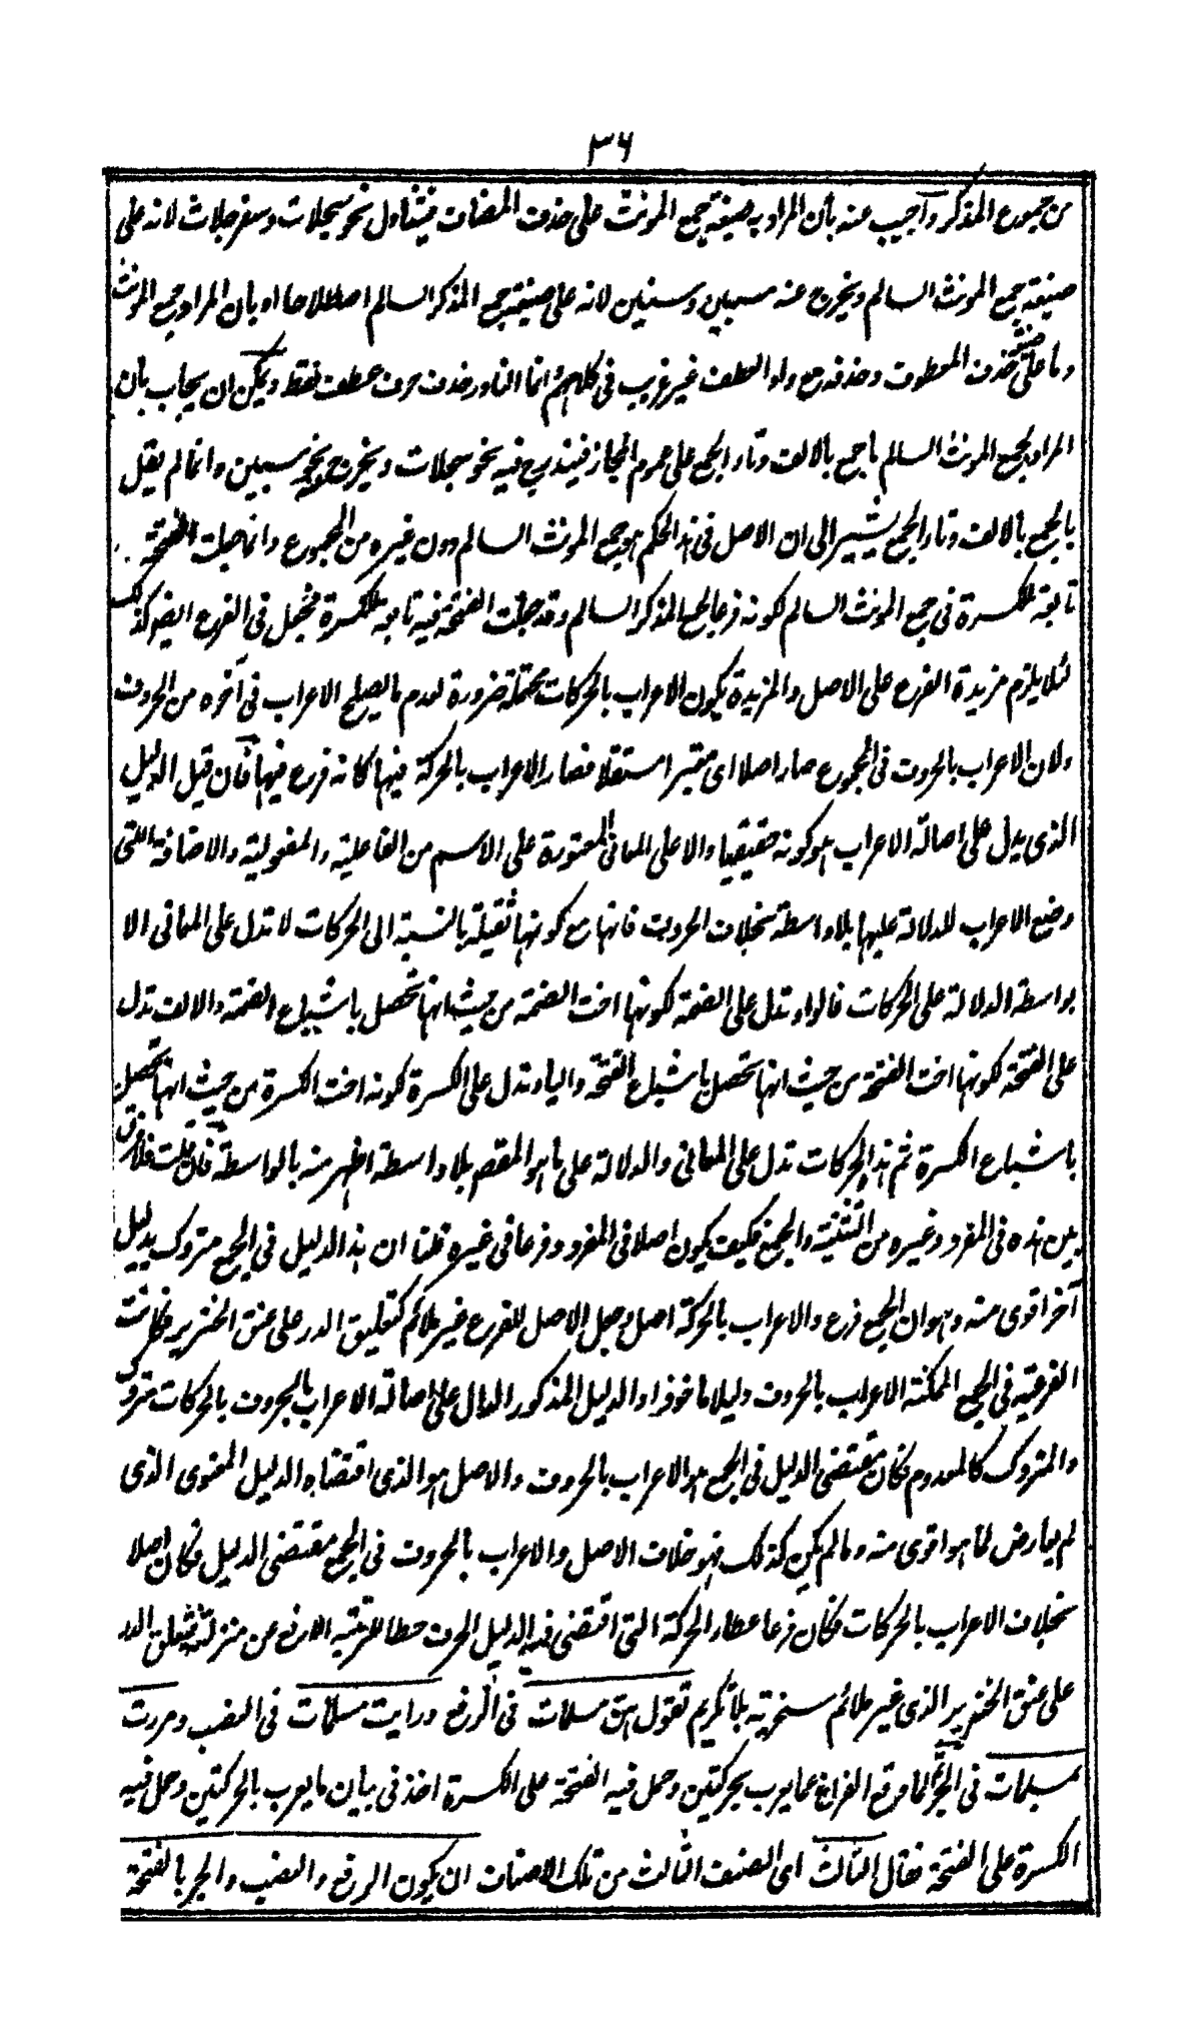 ٣٦
من جموع المذكر وأجيب عنه بأن المراد به صيغة جمع المونث على حذف المضاف فيتناول نحو سجلات وسفرجلات لانه على
صيغة جمع المونث السالم ويخرج عنه سبين وسنين لانه على صيغة جمع المذكر السالم اصطلاحا او بأن المراد جمع المونث
وما على صيغته حذف المعطوف وحذفه مع واو العطف غير غريب فى كلامهم انما النادر حذف حرف عطف فقط ويمكن ان يجاب بان
المراد بجمع المونث السالم ما جمع بالالف وتاء الجمع على عموم المجاز فيندرج فيه نحو سجلات ويخرج نحو سبين وانما لم يقل
بالجمع بالالف وتاء الجمع ليشير الى ان الاصل فى هذا الحكم هو جمع المونث السالم دون غيره من الجموع وانما جعلت الفتحة
تابعة للكسرة فى جمع المونث السالم لكونه فرعا لجمع المذكر السالم وقد جعلت الفتحة فيه تابعة للكسرة فجعل فى الفرع ايضا كذلك
لئلا يلزم مزيدة الفرع على الاصل والمزيدة يكون الاعراب بالحركات محتملة ضرورة لعدم ما يصلح الاعراب فى آخره من الحروف
ولان الاعراب بالحروف فى الجموع صار اصلا اى معتبرا مستقلا فصار الاعراب بالحركة فيها كانه فرع فيها فان قيل الدليل
الذى يدل على اصالة الاعراب هو كونه حقيقيا دالا على المعانى المعتورة على الاسم من الفاعلية والمفعولية والاضافة التى
وضع الاعراب للدلالة عليها بلا واسطة بخلاف الحروف فانها مع كونها ثقيلة بالنسبة الى الحركات لا تدل على المعانى الا
بواسطة الدلالة على الحركات فالواو تدل على الضمة لكونها اخت الضمة من حيث انها تحصل باشباع الضمة والالف تدل
على الفتحة لكونها اخت الفتحة من حيث انها تحصل باشباع الفتحة والياء تدل على الكسرة لكونه اخت الكسرة من حيث انها تحصل
باشباع الكسرة ثم هذه الحركات تدل على المعانى والدلالة على ما هو المقصد بلا واسطة اظهر منه بالواسطة فان قلت فلا فرق
بين هذه فى المفرد وغيره من التثنية والجمع فكيف يكون اصلا فى المفرد وفرعا فى غيره قلنا ان هذا الدليل فى الجمع متروك بدليل
آخر اقوى منه وهو ان الجمع فرع والاعراب بالحركة اصل وجعل الاصل للفرع غير ملائم كتعليق الدر على عنق الخنزير فكانت
الفرعية فى الجمع الممكنة الاعراب بالحروف دليلا ماخوذا والدليل المذكور الدال على اصالة الاعراب بالحروف بالحركات متروك
والمتروك كالمعدوم فكان مقتضى الدليل فى الجمع هو الاعراب بالحروف والاصل هو الذى اقتضاه الدليل المعنوى الذى
لم يعارض لما هو اقوى منه وما لم يكن كذلك فهو خلاف الاصل والاعراب بالحروف فى الجمع مقتضى الدليل فكان اصلا
بخلاف الاعراب بالحركات فكان فرعا عطاء الحركة التى اقتضى فيه الدليل الحرف حطا لمرتبته الادنى من منزلته كتعلق الدر
على عنق الخنزير الذى غير ملائم سخرية بلا تكريم تقول هن مسلمات فى الرفع ورايت مسلمات فى النصب ومررت
بمسلمات فى الجر ولما وقع الفراغ عما يعرب بحركتين وحمل فيه الفتحة على الكسرة اخذ فى بيان ما يعرب بالحركتين وحمل فيه
الكسرة على الفتحة فقال الثالث اى الصنف الثالث من تلك الاصناف ان يكون الرفع والنصب والجر بالفتحة